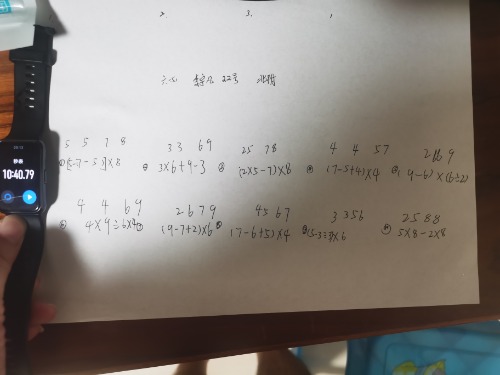 2. 3. 1
22号
5 5 7 8 3 3 6 9 2 5 7 8 4 4 5 7 2 6 9
3×6+9-3 (2×5-7)×8 (7-5+4)×4 (9-6)×(6+2)
秒表
10:40.79
4 4 6 9 2 6 7 9 4 5 6 7 3 3 5 6 2 5 8 8
4×9÷6×4 (9-7+2)×6 (7-6+5)×4 (5-3÷3)×6 5×8-2×8